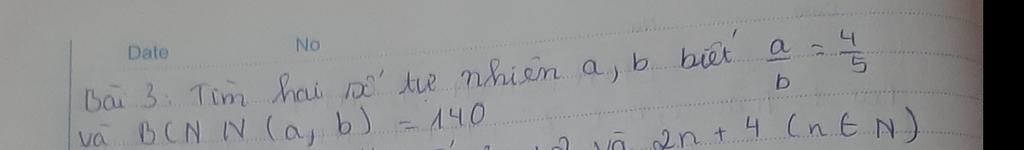 Date No
Bài 3: Tìm hai số tự nhiên a, b biết a/b = 4/5
và BCNN(a, b) = 140
và 2n + 4 (n ∈ N)